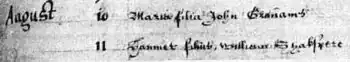 August 10 Maria filia John
11 Hamnet filius William Shakspere